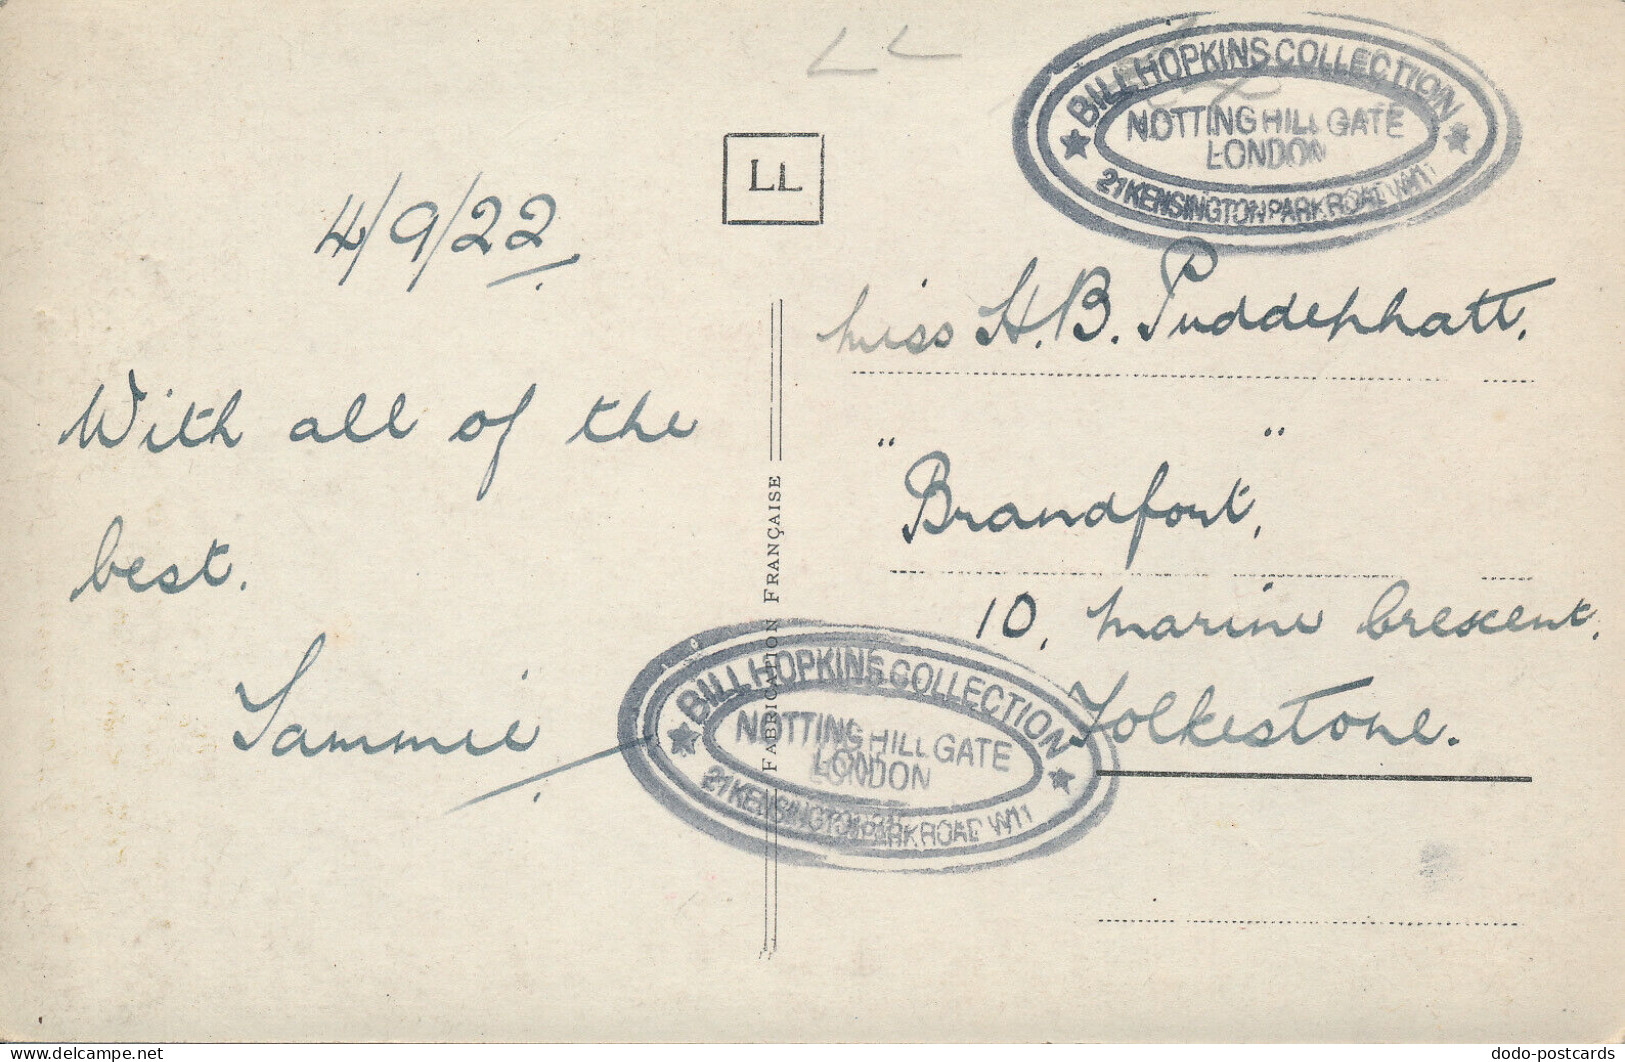 LL
BILL HOPKINS COLLECTION
NOTTING HILL GATE
LONDON
21 KENSINGTON PARK ROAD W11
LL
4/9/22.
With all of the
best.
Sammie
FABRICATION FRANÇAISE
Miss H. B. Puddephatt.
"Brandfort,"
10, Marine Crescent,
Folkestone.
BILL HOPKINS COLLECTION
NOTTING HILL GATE
LONDON
21 KENSINGTON PARK ROAD W11
delcampe.net
dodo-postcards